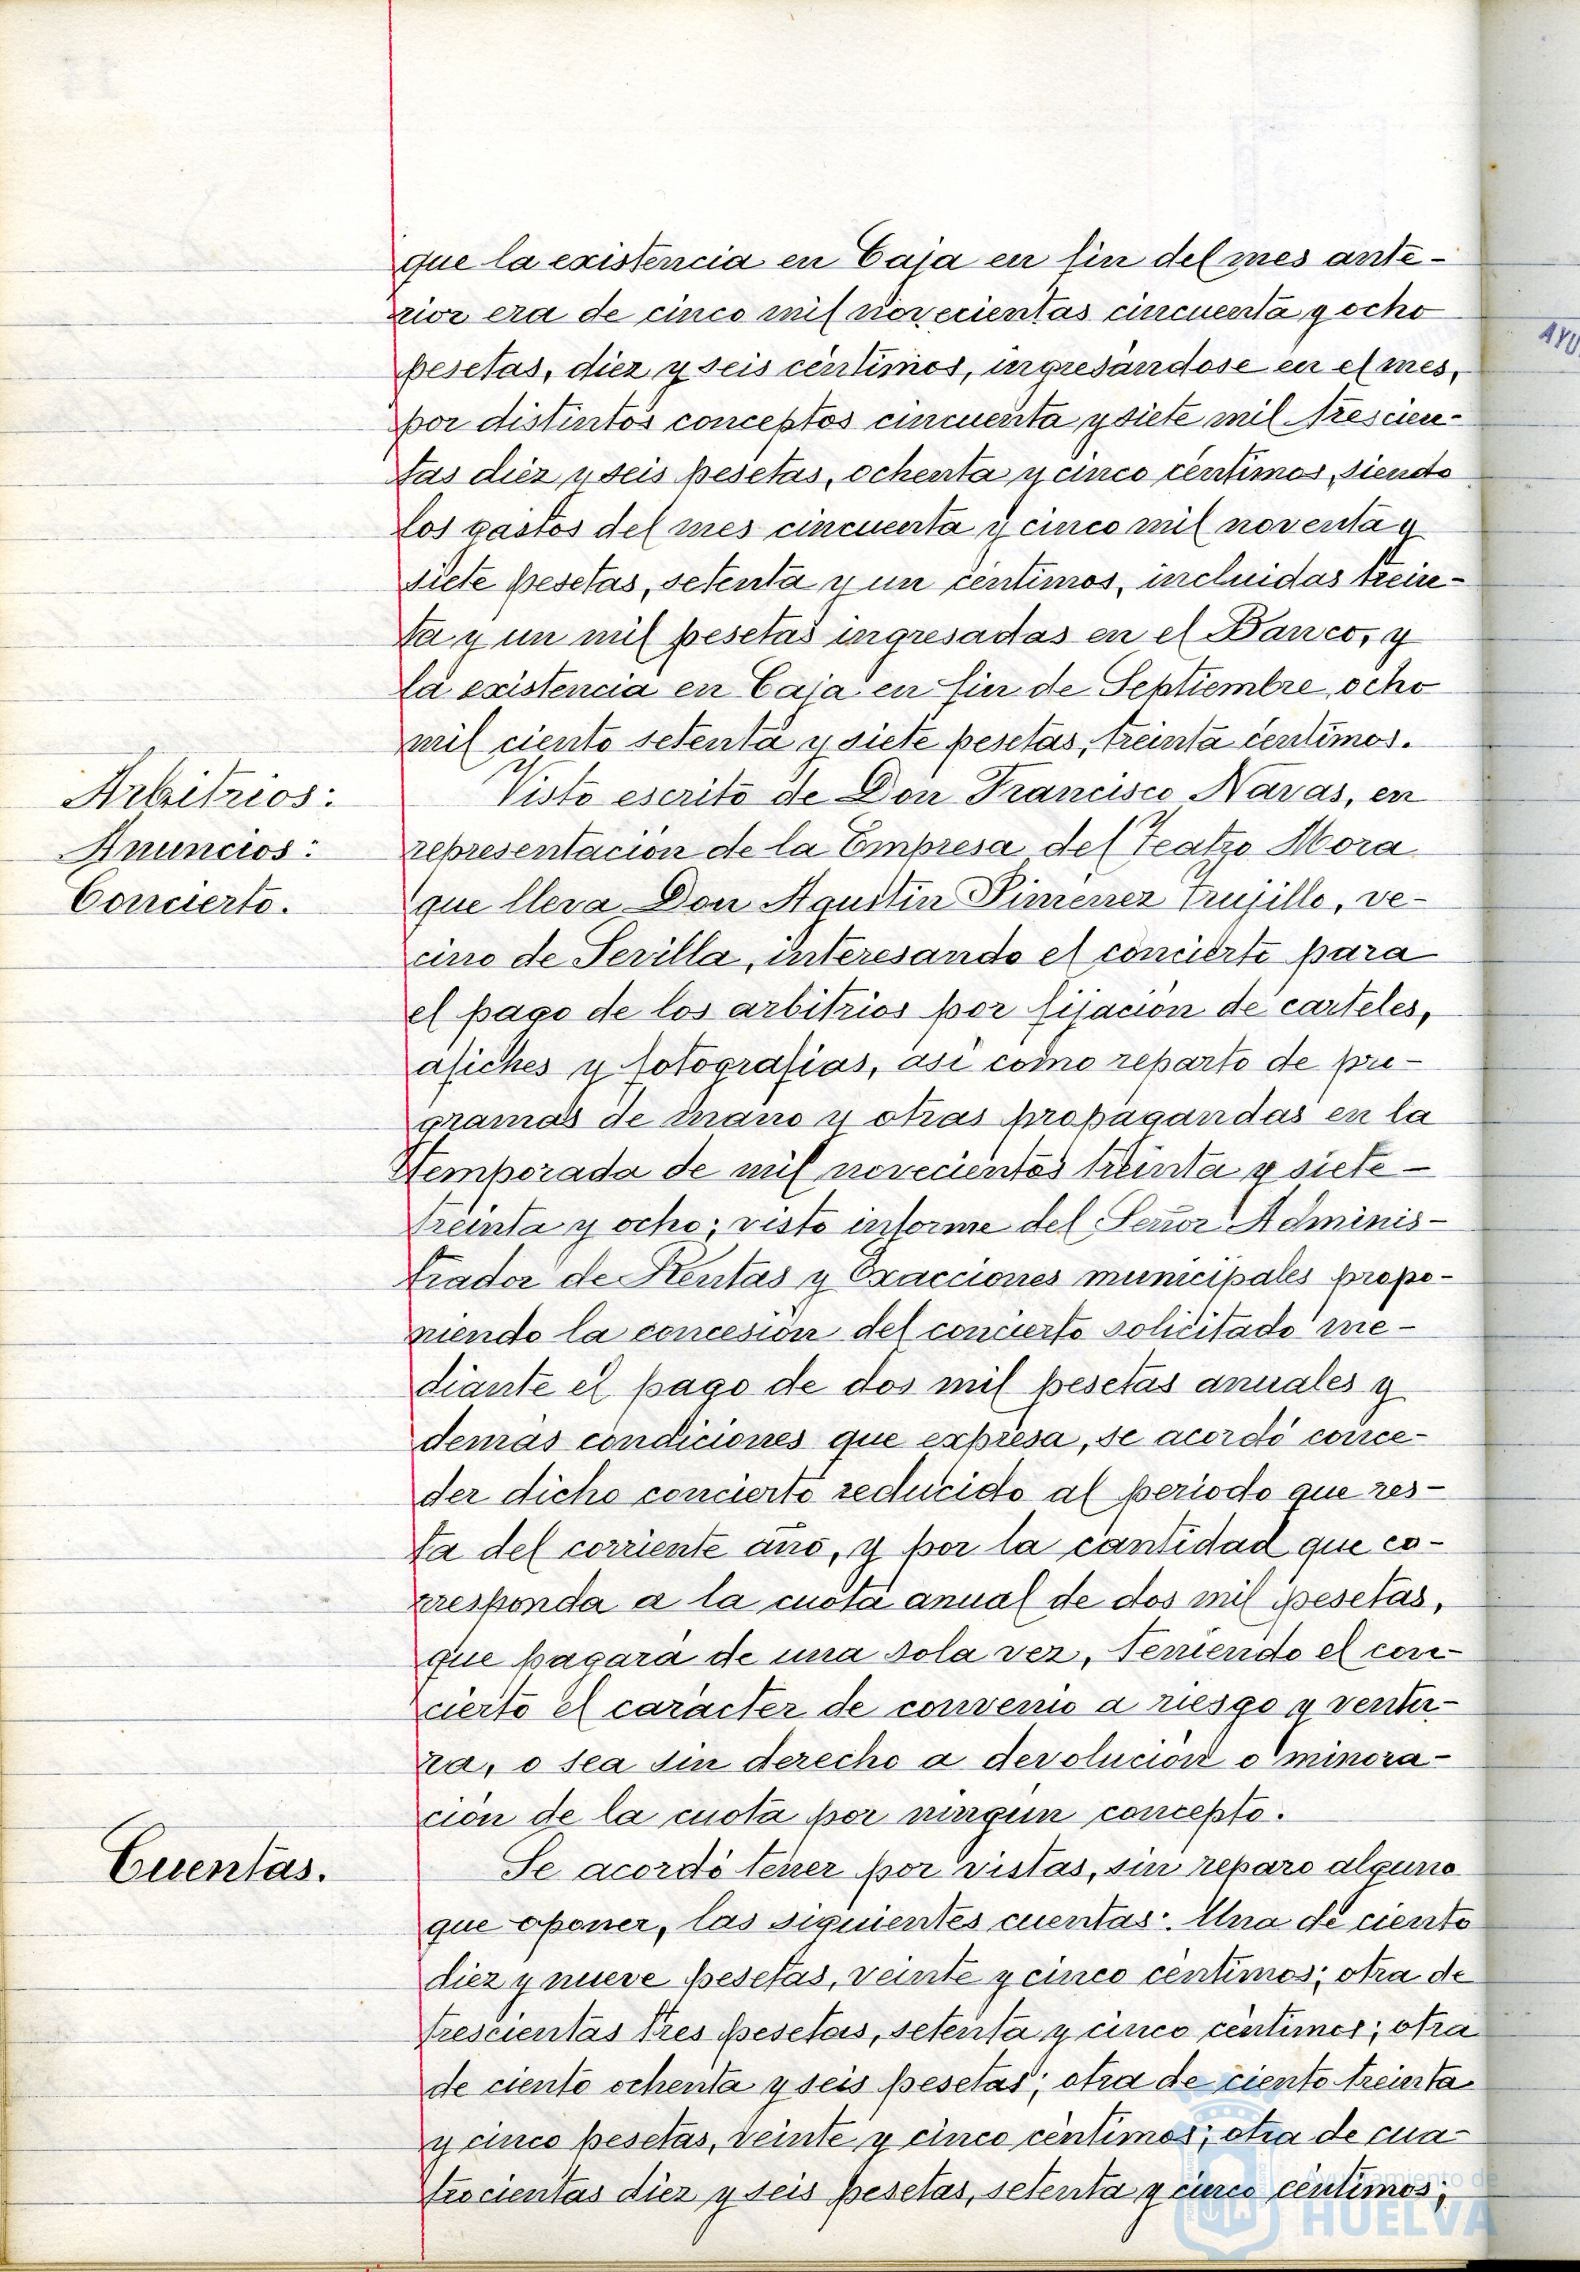 que la existencia en Caja en fin del mes ante-
rior era de cinco mil novecientas cincuenta y ocho
pesetas, diez y seis céntimos, ingresándose en el mes,
por distintos conceptos cincuenta y siete mil trescien-
tas diez y seis pesetas, ochenta y cinco céntimos, siendo
los gastos del mes cincuenta y cinco mil noventa y
siete pesetas, setenta y un céntimos, incluidas trein-
ta y un mil pesetas ingresadas en el Banco, y
la existencia en Caja en fin de Septiembre, ocho
mil ciento setenta y siete pesetas, treinta céntimos.
Arbitrios:
Anuncios:
Concierto.
Visto escrito de Don Francisco Navas, en
representación de la Empresa del Teatro Mora
que lleva Don Agustin Pimenez Trujillo, ve-
cino de Sevilla, interesando el concierto para
el pago de los arbitrios por fijación de carteles,
afiches y fotografias, asi como reparto de pro-
gramas de mano y otras propagandas en la
temporada de mil novecientos treinta y siete -
treinta y ocho; visto informe del Señor Adminis-
trador de Rentas y Exacciones municipales propo-
niendo la concesión del concierto solicitado me-
diante el pago de dos mil pesetas anuales y
demás condiciones que expresa, se acordó conce-
der dicho concierto reducido al periodo que res-
ta del corriente año, y por la cantidad que co-
rresponda a la cuota anual de dos mil pesetas,
que pagará de una sola vez, teniendo el con-
cierto el carácter de convenio a riesgo y ventu-
ra, o sea sin derecho a devolución o minora-
ción de la cuota por ningún concepto.
Cuentas.
Se acordó tener por vistas, sin reparo alguno
que oponer, las siguientes cuentas: Una de ciento
diez y nueve pesetas, veinte y cinco céntimos; otra de
trescientas tres pesetas, setenta y cinco céntimos; otra
de ciento ochenta y seis pesetas; otra de ciento treinta
y cinco pesetas, veinte y cinco céntimos; otra de cua-
trocientas diez y seis pesetas, setenta y cinco céntimos;
AYU
Ayuntamiento de
HUELVA